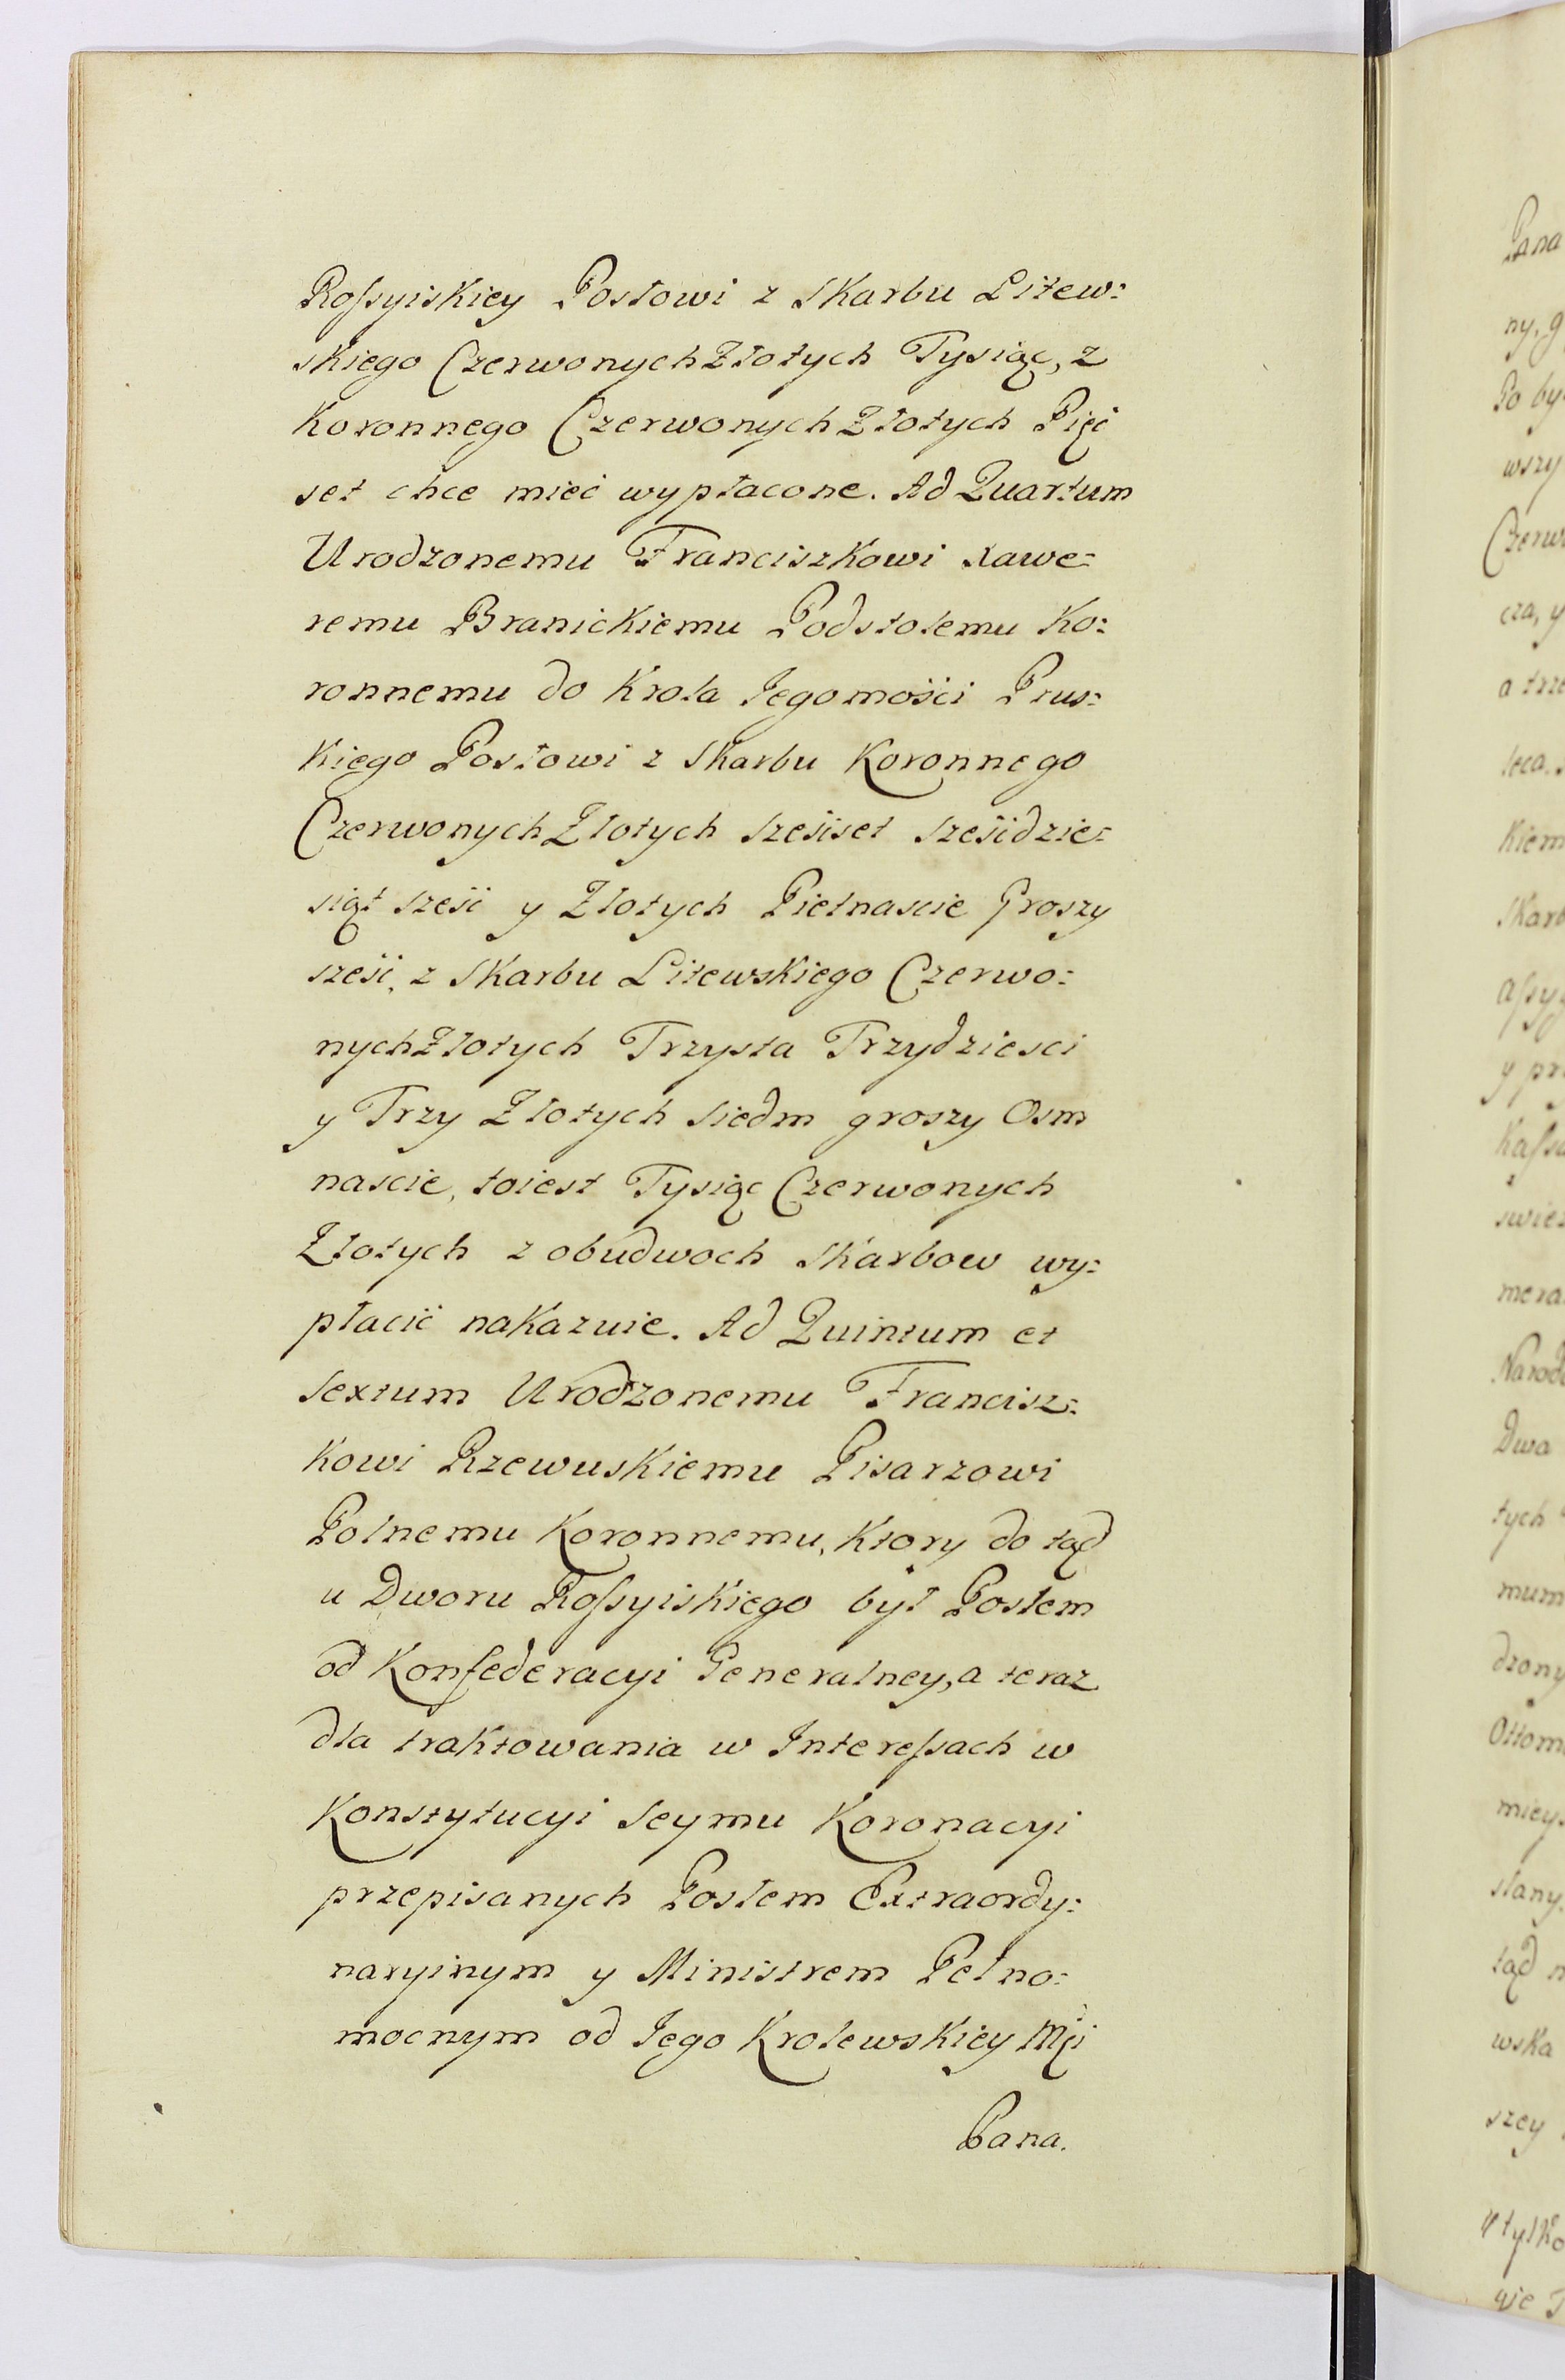 Rossyiskiey Posłowi z Skarbu Litew:
skiego Czerwonych Złotych Tysiąc, z
Koronnego Czerwonych Złotych Pięć
set chce mieć wypłacone. Ad Quartum
Urodzonemu Franciszkowi Xawe:
remu Branickiemu Podstolemu Ko:
ronnemu do Krola Jegomości Prus:
kiego Posłowi z Skarbu Koronnego
Czerwonych Złotych sześćset sześćdzie:
siąt sześć y Złotych Pietnascie Groszy
sześć, z Skarbu Litewskiego Czerwo:
nych Złotych Trzysta Trzydziesci
y Trzy Złotych siedm groszy Osm
nascie, toiest Tysiąc Czerwonych
Złotych z obudwoch Skarbow wy:
płacić nakazuie. Ad Quintum et
Sextum Urodzonemu Francisz:
kowi Rzewuskiemu Pisarzowi
Polnemu Koronnemu, Ktory do tąd
u Dworu Rossyiskiego był Posłem
od Konfederacyi Generalney, a teraz
dla traktowania w Interessach w
Konstytucyi Seymu Koronacyi
przepisanych Posłem Extraordy:
naryinym y Ministrem Pełno:
mocnym od Jego Krolewskiey Mći
Pana.
Pana
ny, g
Po by
wszy
Czerw
cza, y
a trze
leca.
Kiem
Skarb
assy
y pr
Kass
swie
mera
Narod
Dwa
tych
mum
dzony
Ottom
miey
słany
tąd n
wska
szey
y tylko